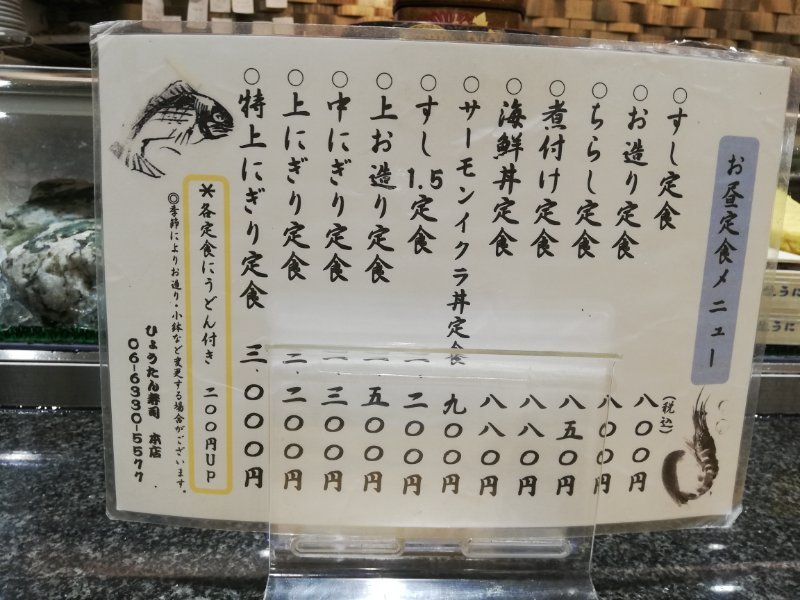 お昼定食メニュー
(税込)
○すし定食 八〇〇円
○お造り定食 八〇〇円
○ちらし定食 八五〇円
○煮付け定食 八八〇円
○海鮮丼定食 八八〇円
○サーモンイクラ丼定食 九〇〇円
○すし1.5定食 一.二〇〇円
○上お造り定食 一.五〇〇円
○中にぎり定食 一.三〇〇円
○上にぎり定食 二.二〇〇円
○特上にぎり定食 三.〇〇〇円
＊各定食にうどん付き 二〇〇円UP
◎季節によりお造り・小鉢など変更する場合がございます。
ひょうたん寿司 本店
06-6330-5577